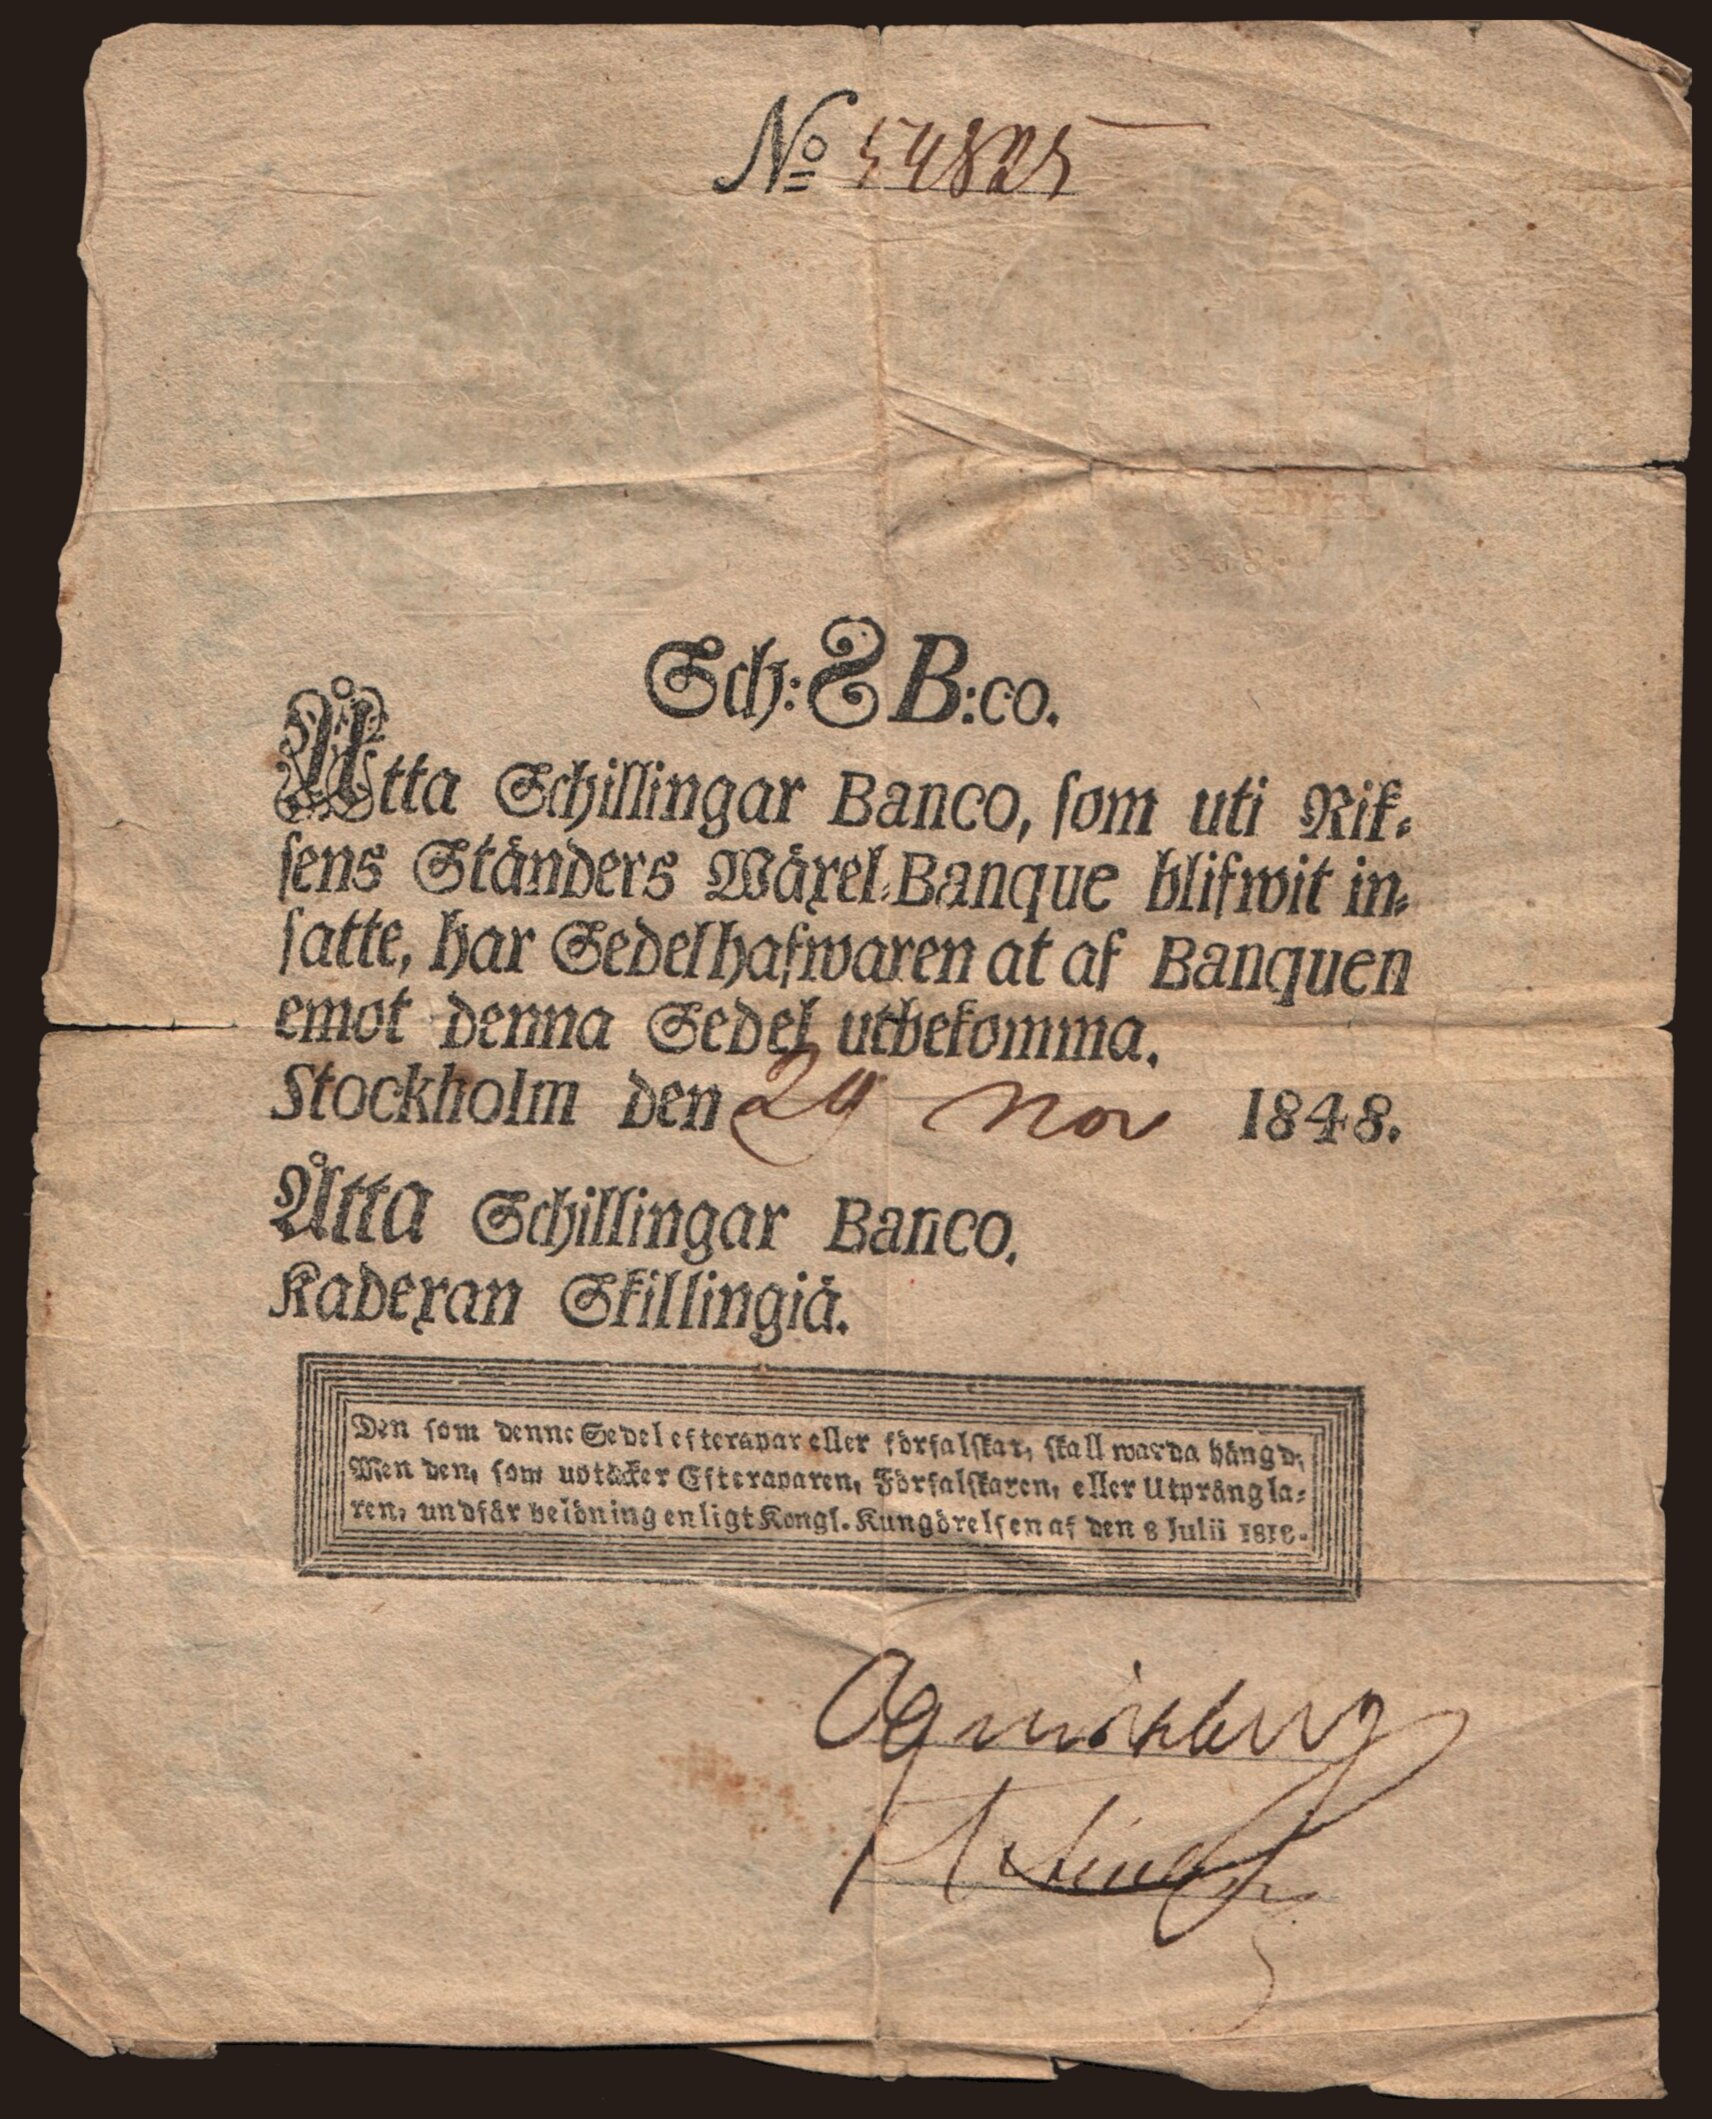 No 54825
Sch: 8 B:co.
Åtta Schillingar Banco, som uti Rik-
sens Ständers Wäxel-Banque blifwit in-
satte, har Sedelhafwaren at af Banquen
emot denna Sedel utbekomma.
Stockholm den 24 Nov 1848.
Åtta Schillingar Banco.
Kadexan Skillingiä.
Den som denne Sedel efterapar eller förfalskar, skall warda hängd;
Men den, som uptäcker Efteraparen, Förfalskaren, eller Utprångla-
ren, undfår belöning enligt Kongl. Kungörelsen af den 8 Julii 1818.